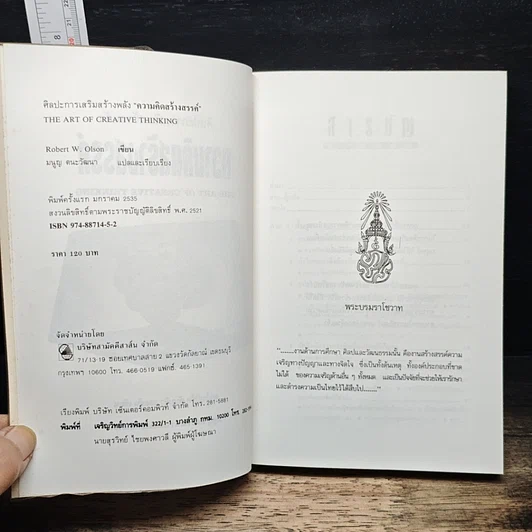 ศิลปะการเสริมสร้างพลัง "ความคิดสร้างสรรค์"
THE ART OF CREATIVE THINKING
Robert W. Olson เขียน
มนูญ ตนะวัฒนา แปลและเรียบเรียง
พิมพ์ครั้งแรก มกราคม 2535
สงวนลิขสิทธิ์ตามพระราชบัญญัติลิขสิทธิ์ พ.ศ. 2521
ISBN 974-88714-5-2
ราคา 120 บาท
จัดจำหน่ายโดย
บริษัทสามัคคีสาส์น จำกัด
71/13-19 ซอยเทศบาลสาย 2 แขวงวัดกัลยาณ์ เขตธนบุรี
กรุงเทพฯ 10600 โทร. 466-0519 แฟกซ์. 465-1391
เรียงพิมพ์ บริษัท เซ็นเตอร์คอมพิวท์ จำกัด โทร. 281-5881
พิมพ์ที่ เจริญวิทย์การพิมพ์ 322/1-1 บางลำภู กทม. 10200 โทร.
นายสุรวิทย์ ไชยพงศาวลี ผู้พิมพ์ผู้โฆษณา
พระบรมราโชวาท
"......งานด้านการศึกษา ศิลปและวัฒนธรรมนั้น คืองานสร้างสรรค์ความ
เจริญทางปัญญาและทางจิตใจ ซึ่งเป็นทั้งต้นเหตุ ทั้งองค์ประกอบที่ขาด
ไม่ได้ ของความเจริญด้านอื่น ๆ ทั้งหมด และเป็นปัจจัยที่จะช่วยให้เรารักษา
และดำรงความเป็นไทยไว้ได้สืบไป......"